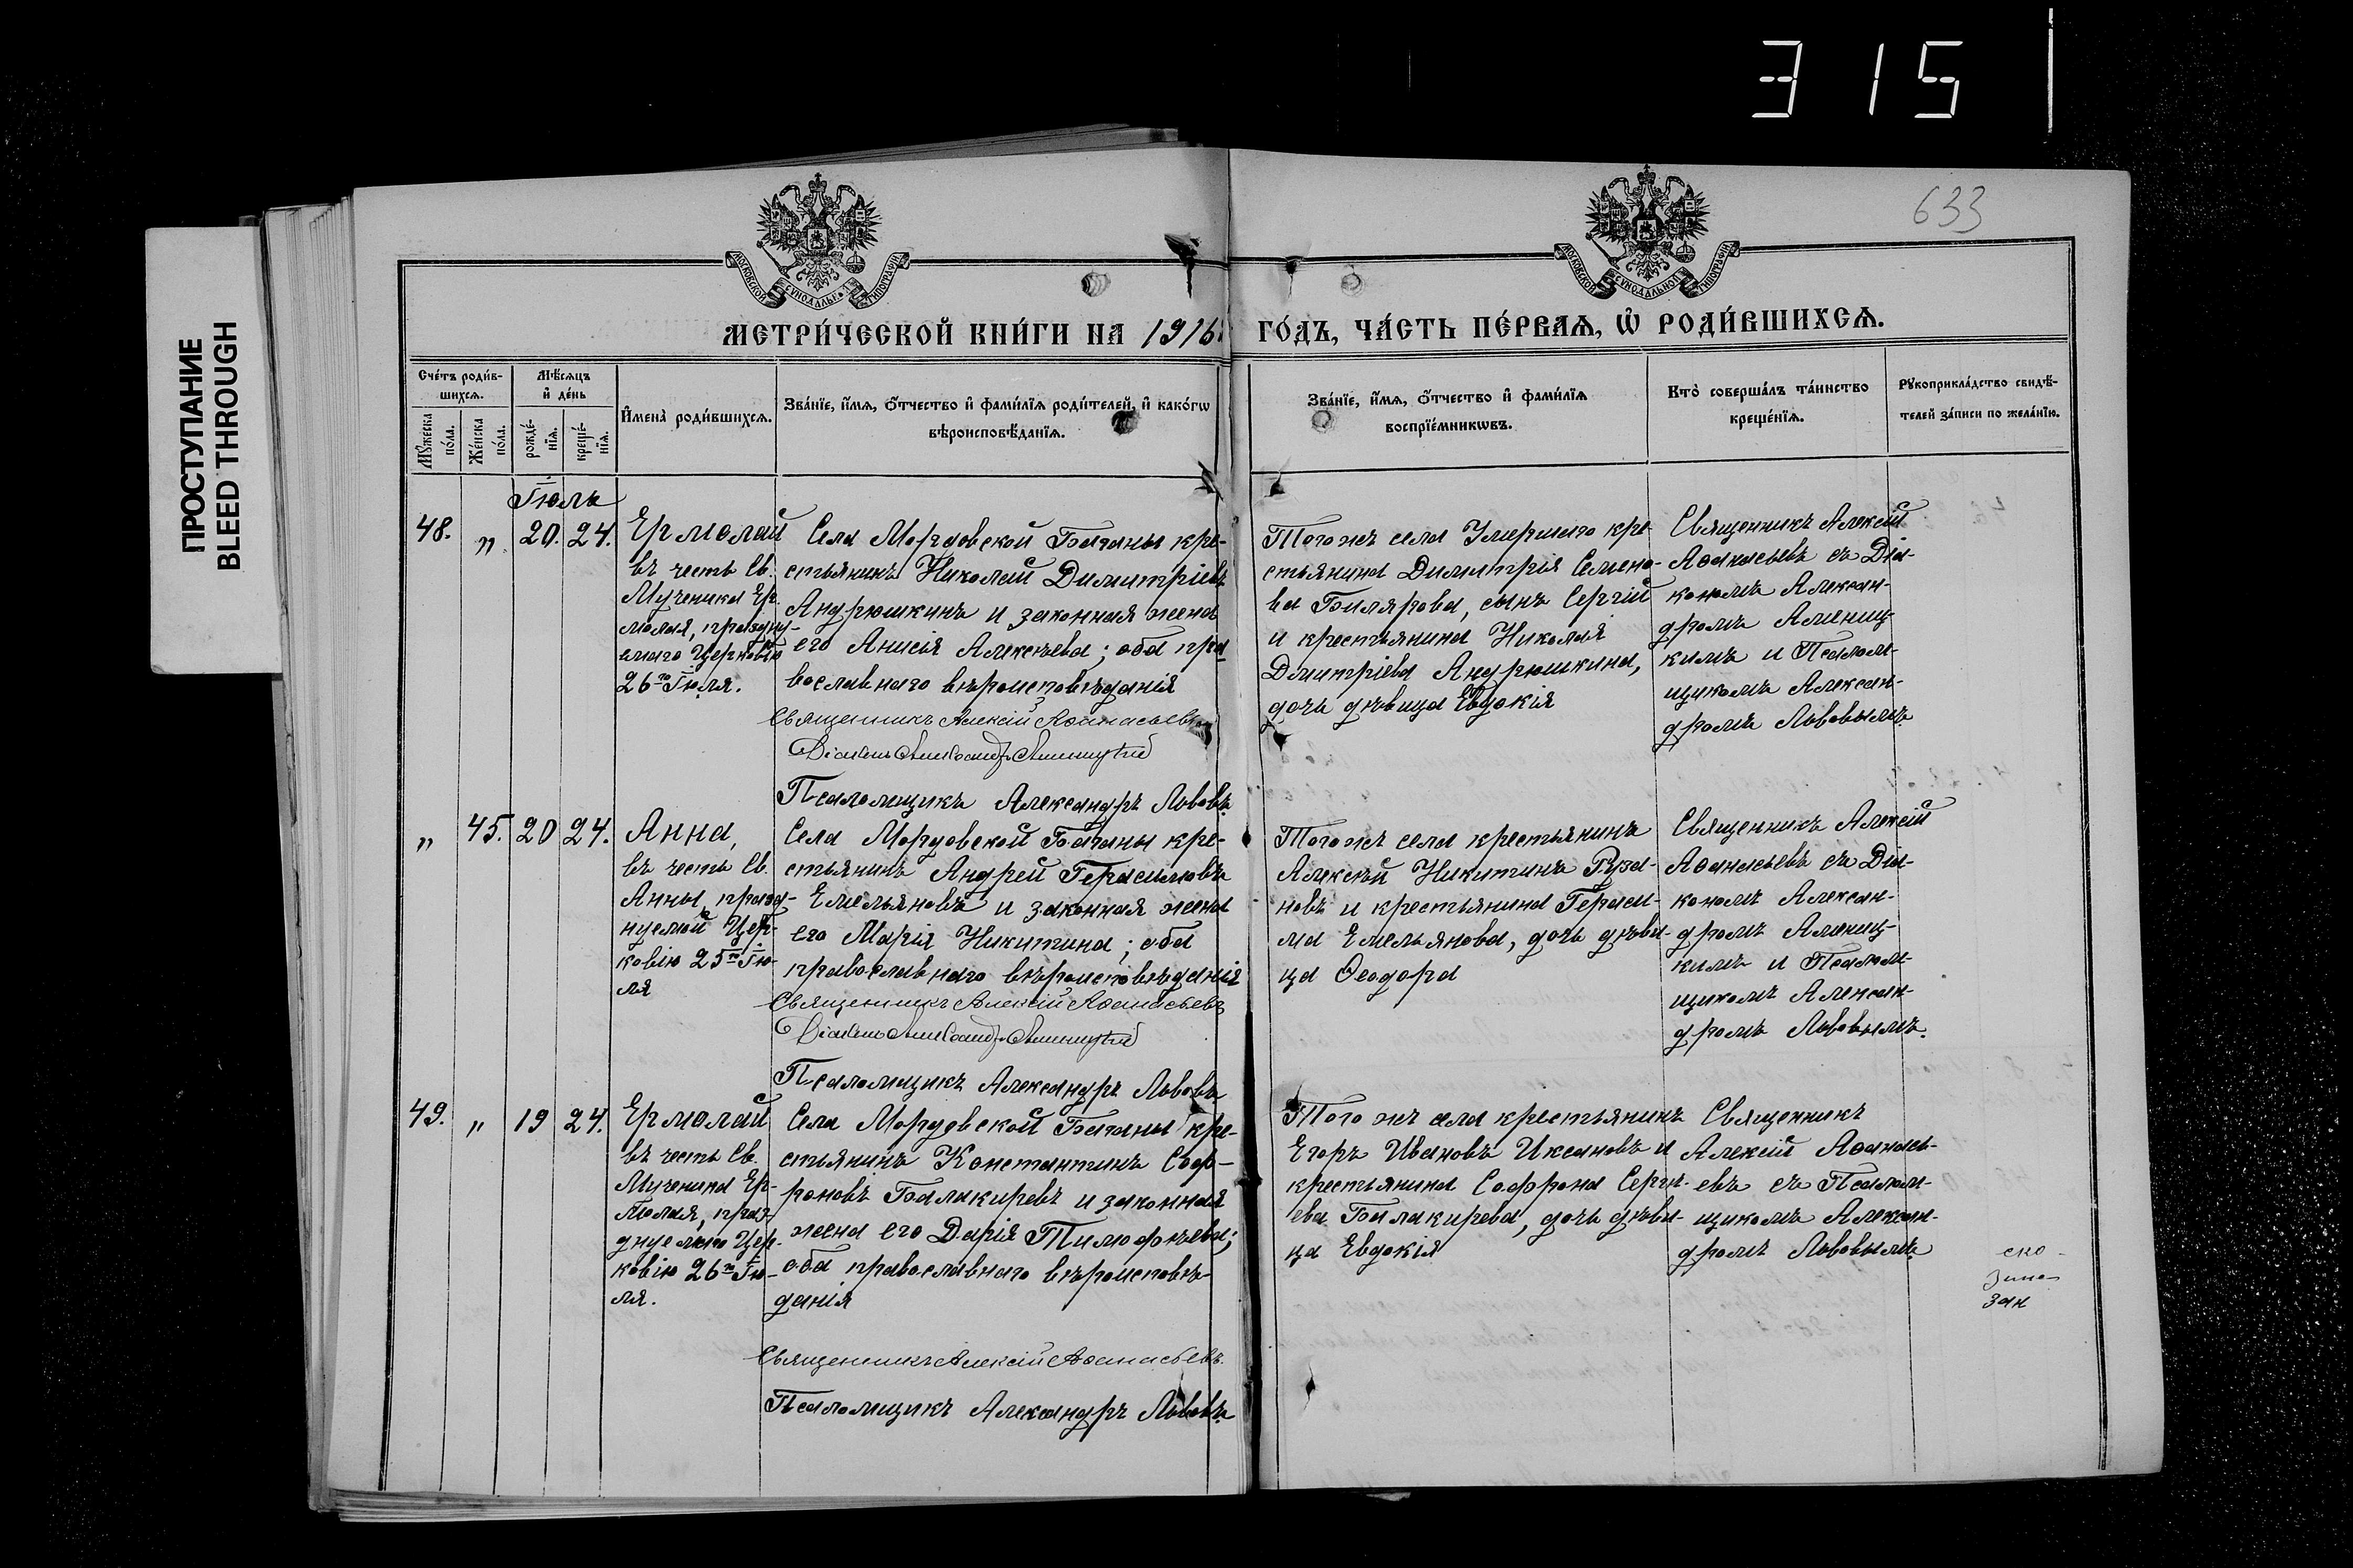 3 1 5
633
ПРОСТУПАНИЕ
BLEED THROUGH
МОСКОВСКОЙ СУНОДАЛЬНОЙ ТИПОГРАФІИ
МОСКОВСКОЙ СУНОДАЛЬНОЙ ТИПОГРАФІИ
МЕТРИ́ЧЕСКОЙ КНИ́ГИ НА 1916 ГО́ДЪ, ЧА́СТЬ ПЕ́РВАѦ, Ѽ РОДИ́ВШИХСѦ.
Сче́тъ роди́в-
шихсѧ.
Мꙋ́жеска по́ла.
Же́нска по́ла.
Мѣ́сѧцъ
и҆ де́нь
рожде́-
нїѧ.
креще́-
нїѧ.
И҆мена̀ роди́вшихсѧ.
Зва́нїе, и҆́мѧ, ѻ҆́тчество и҆ фами́лїѧ роди́телей, и҆ како́гѡ
вѣроисповѣ́данїѧ.
Зва́нїе, и҆́мѧ, ѻ҆́тчество и҆ фами́лїѧ
воспрїе́мникѡвъ.
Кто̀ соверша́лъ та́инство
креще́нїѧ.
Рꙋкоприкла́дство свидѣ́-
телей за́писи по жела́нїю.
Іюль
48. „ 20. 24.
Ермолай
въ честь Св.
Мученика Ер-
молая, праздну-
емаго Церковію
26го Іюля.
Села Мордовской Баганы кре-
стьянинъ Николай Димитріевъ
Андрюшкинъ и законная жена
его Анисія Алексѣева; оба пра-
вославнаго вѣроисповѣданія
Священникъ Алексій Аѳанасьевъ
Діаконъ Александръ Алмицкій
Псаломщикъ Александръ Львовъ.
Того же села Умершаго кре-
стьянина Димитрія Семено-
ва Билярова, сынъ Сергій
и крестьянина Николая
Димитріева Андрюшкина,
дочь дѣвица Евдокія
Священникъ Алексій
Аѳанасьевъ съ Діа-
кономъ Алексан-
дромъ
и Псалом-
щикомъ Алексан-
дромъ Львовымъ.
„ 45. 20 24.
Анна,
въ честь Св.
Анны, празд-
нуемой Цер-
ковію 25го Ію-
ля
Села Мордовской Баганы кре-
стьянинъ Андрей Герасимовъ
Емельяновъ и законная жена
его Марія Никитина; оба
православнаго вѣроисповѣданія
Священникъ Алексій Аѳанасьевъ
Діаконъ Александръ
Псаломщикъ Александръ Львовъ
Того же села крестьянинъ
Алексѣй Никитинъ Руза-
новъ и крестьянина Гераси-
ма Емельянова, дочь дѣви-
ца Ѳеодора
Священникъ Алексій
Аѳанасьевъ съ Діа-
кономъ Алексан-
дромъ
и Псалом-
щикомъ Алексан-
дромъ Львовымъ.
49. „ 19 24.
Ермолай
въ честь Св.
Мученика Ер-
молая, праз-
днуемаго Цер-
ковію 26го Ію-
ля.
Села Мордовской Баганы кре-
стьянинъ Константинъ Соф-
роновъ Балакиревъ и законная
жена его Дарія Тимофѣева;
оба православнаго вѣроисповѣ-
данія
Священникъ Алексій Аѳанасьевъ.
Псаломщикъ Александръ Львовъ.
Того же села крестьянинъ
Егоръ Ивановъ Иксановъ и
крестьянина Софрона Сергѣ-
ева Балакирева, дочь дѣви-
ца Евдокія
Священникъ
Алексій Аѳанась-
евъ съ Псалом-
щикомъ Алексан-
дромъ Львовымъ